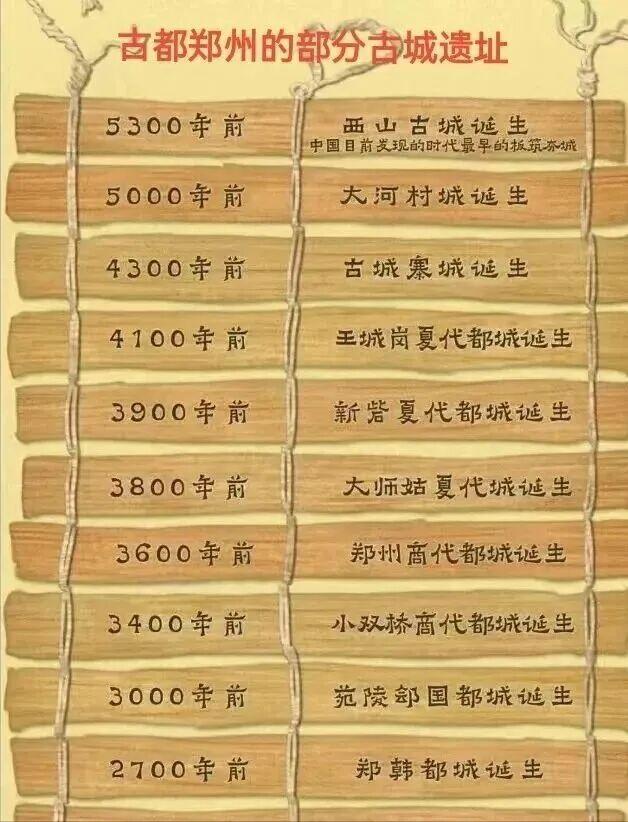 古都郑州的部分古城遗址
5300年前 西山古城诞生
中国目前发现的时代最早的板筑夯城
5000年前 大河村城诞生
4300年前 古城寨城诞生
4100年前 王城岗夏代都城诞生
3900年前 新砦夏代都城诞生
3800年前 大师姑夏代城诞生
3600年前 郑州商代都城诞生
3400年前 小双桥商代都城诞生
3000年前 苑陵郐国都城诞生
2700年前 郑韩都城诞生